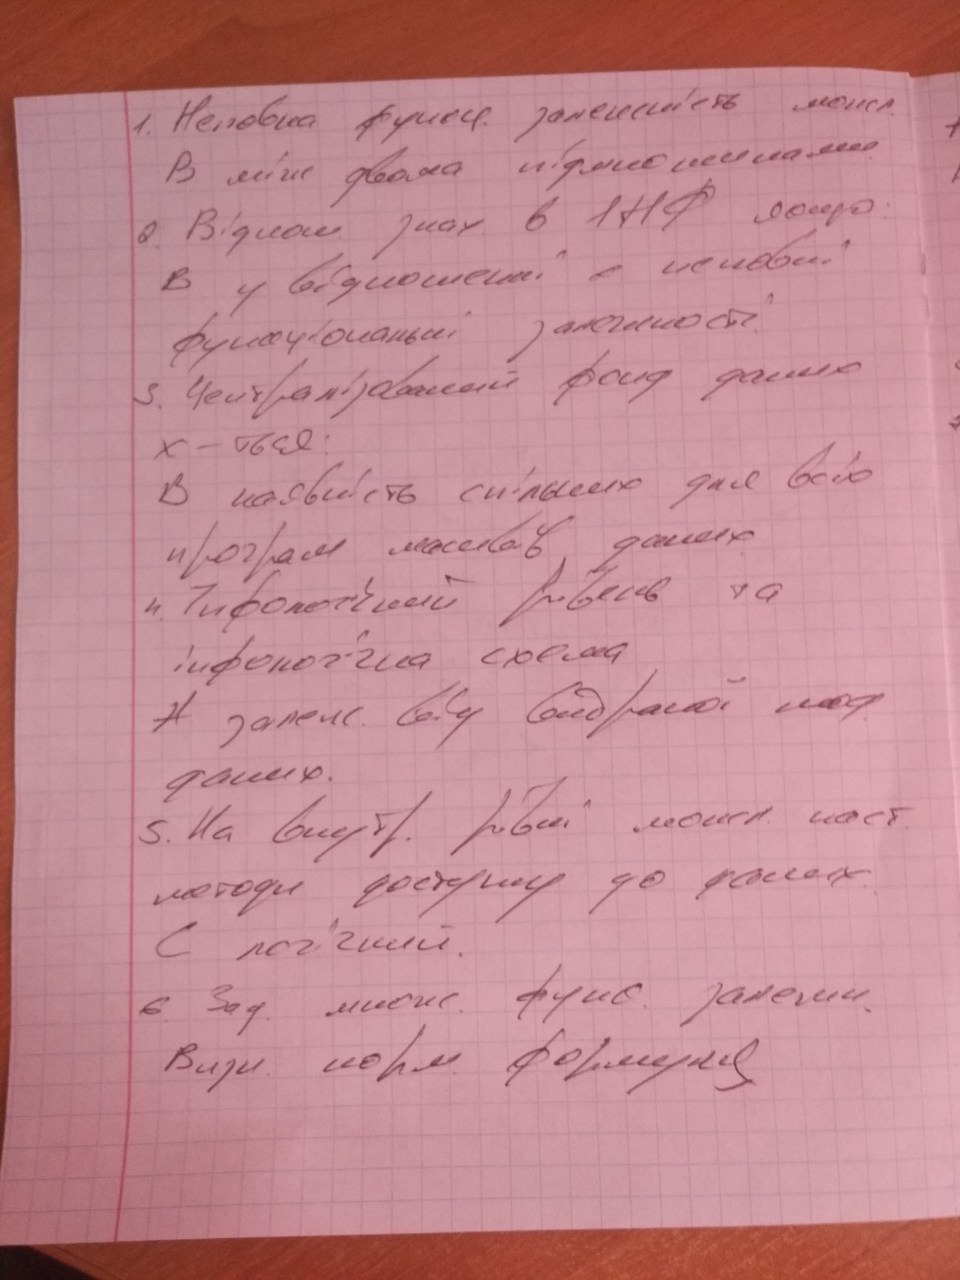 1. Неповна функц. залежність можл.
В між двома підмножинами
2. Віднош знах. в 1НФ якщо:
В у відношенні є неповні
функціональні залежності
3. Централізований фонд даних
х-ться:
В наявність спільних для всіх
програм масивів даних
4. Інфологічний рівень та
інфологічна схема
А залеж. від вибраної мод
даних.
5. На внутр. рівні можл. наст.
методи доступу до даних
С логічний.
6 Зад. множ. функ. залежн.
Визн. норм.